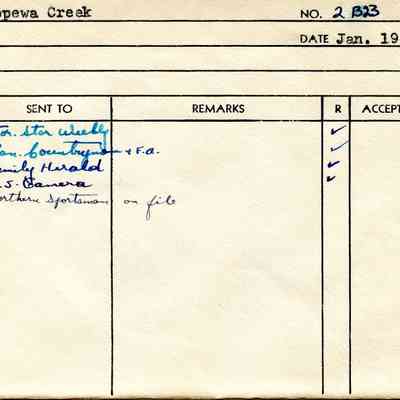 opewa Creek NO. 2 B23
DATE Jan. 19
SENT TO REMARKS R ACCEPT
or. Star Weekly ✓
an. Countryman + F.a. ✓
amily Herald ✓
.S. Camera ✓
orthern Sportsman on file